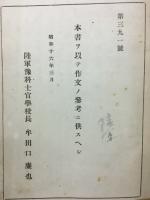 第三九一號
本書ヲ以テ作文ノ參考ニ供スヘシ
昭和十六年三月
陸軍豫科士官學校長 牟田口廉也